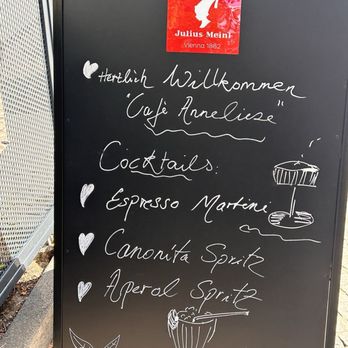 Julius Meinl
Vienna 1862
Herzlich Willkommen
"Café Anneliese"
Cocktails:
Espresso Martini
Canonita Spritz
Aperol Spritz